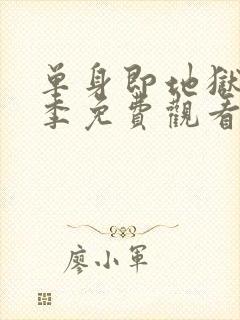 单身即地獄
季免費觀看
廖小軍